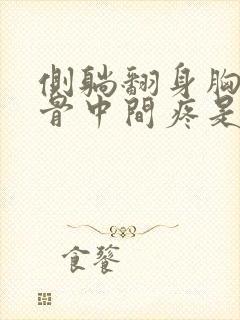 側躺翻身胸
骨中間疼是
食饕